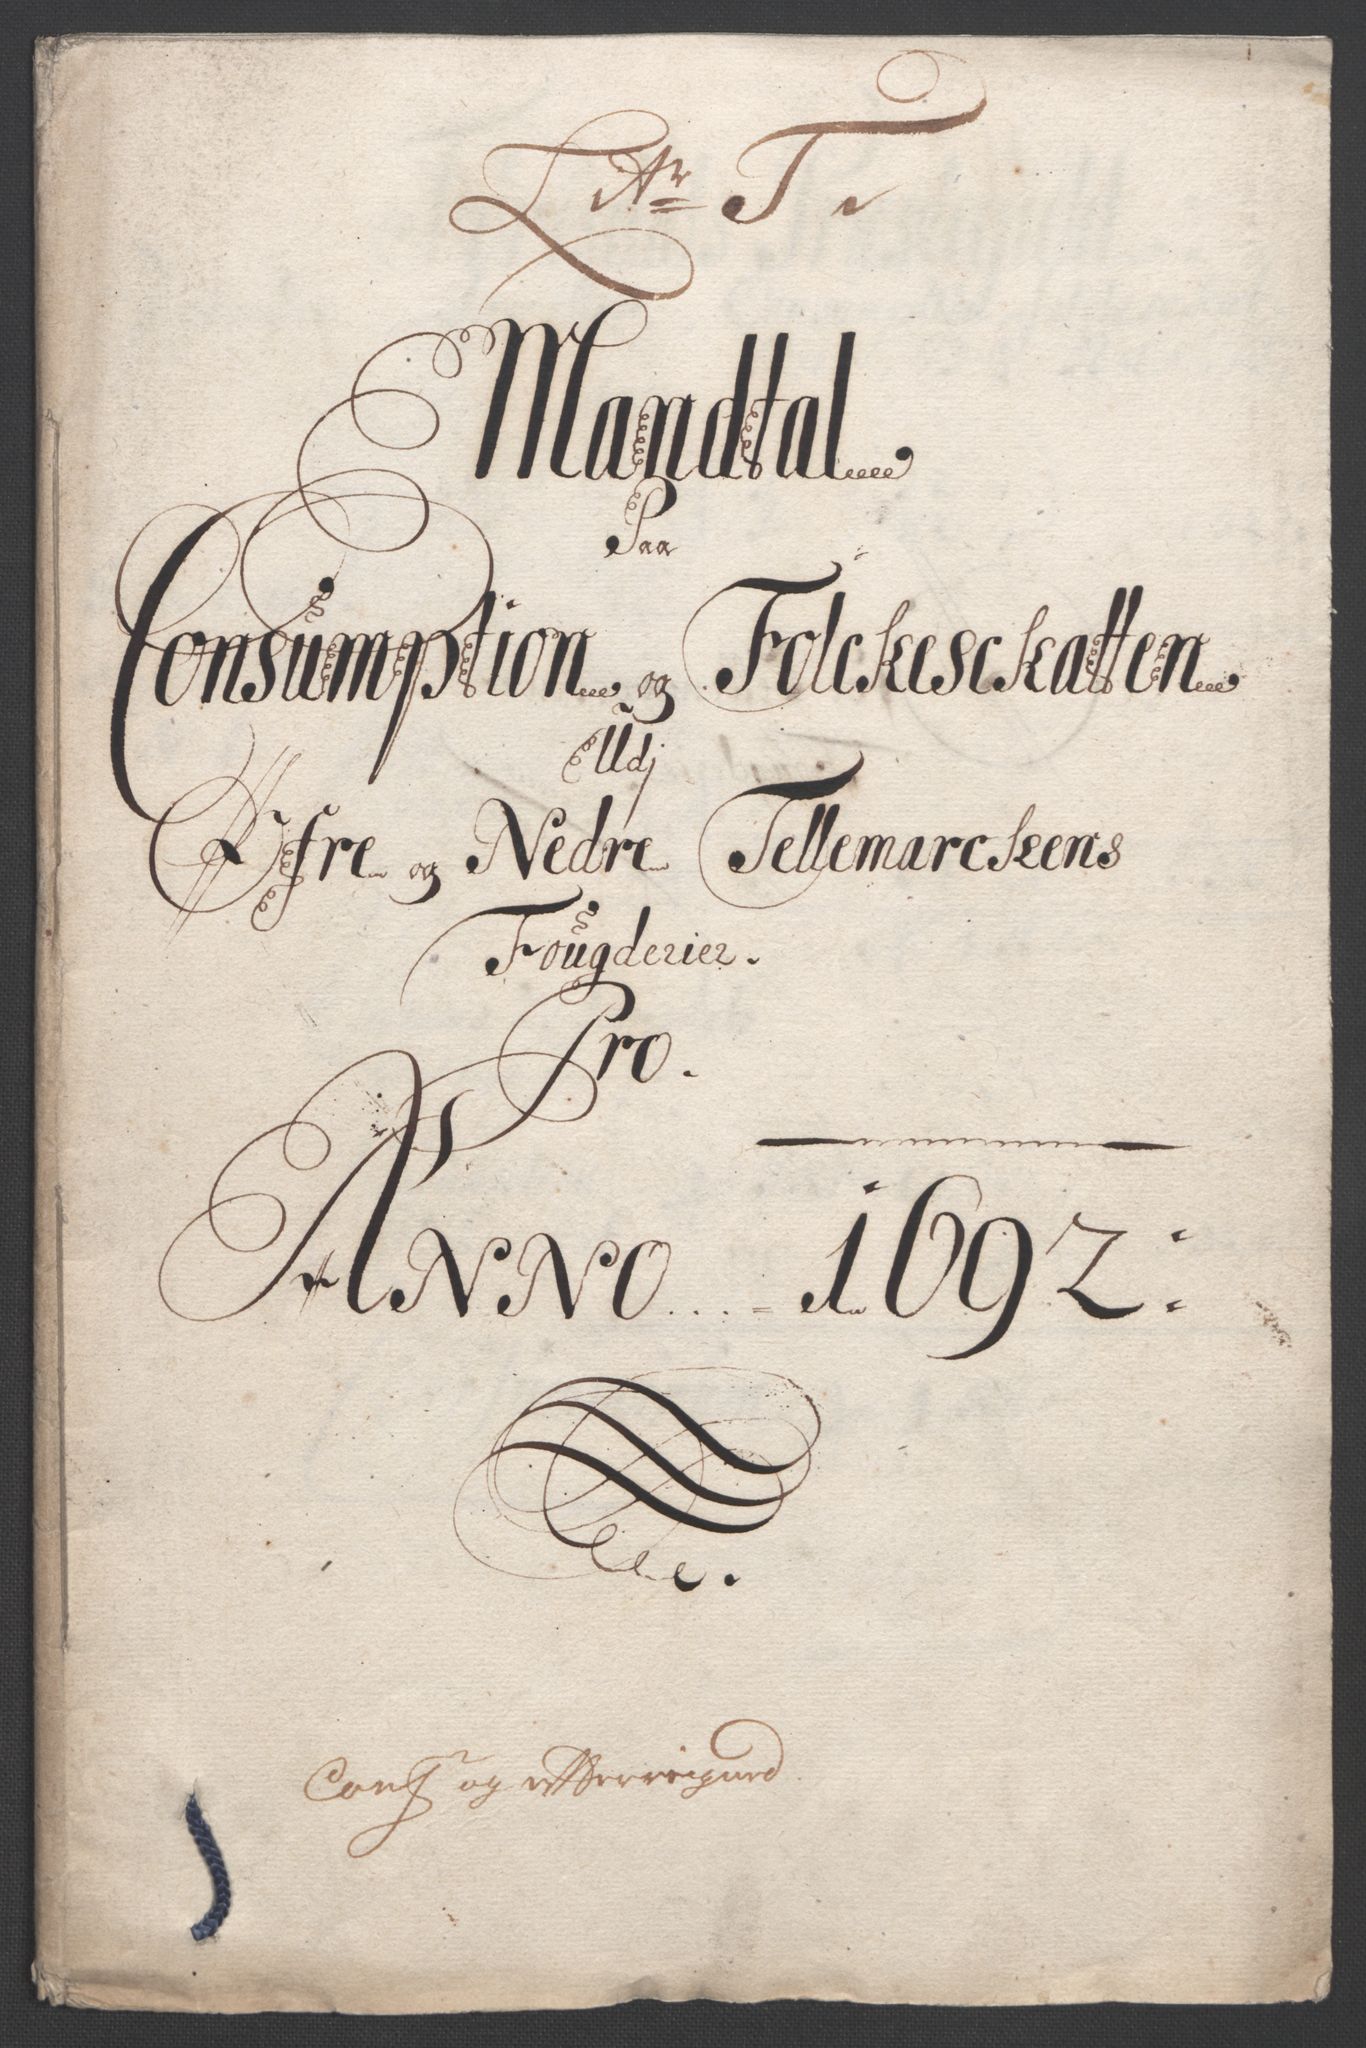 Litr T
Mandtal
Paa
Consumption og Folckesckatten
Udj
Øfre og Nedre Tellemarckens
Fougderier.
Pro.
ANNO 1692:
Conf og efterreigned